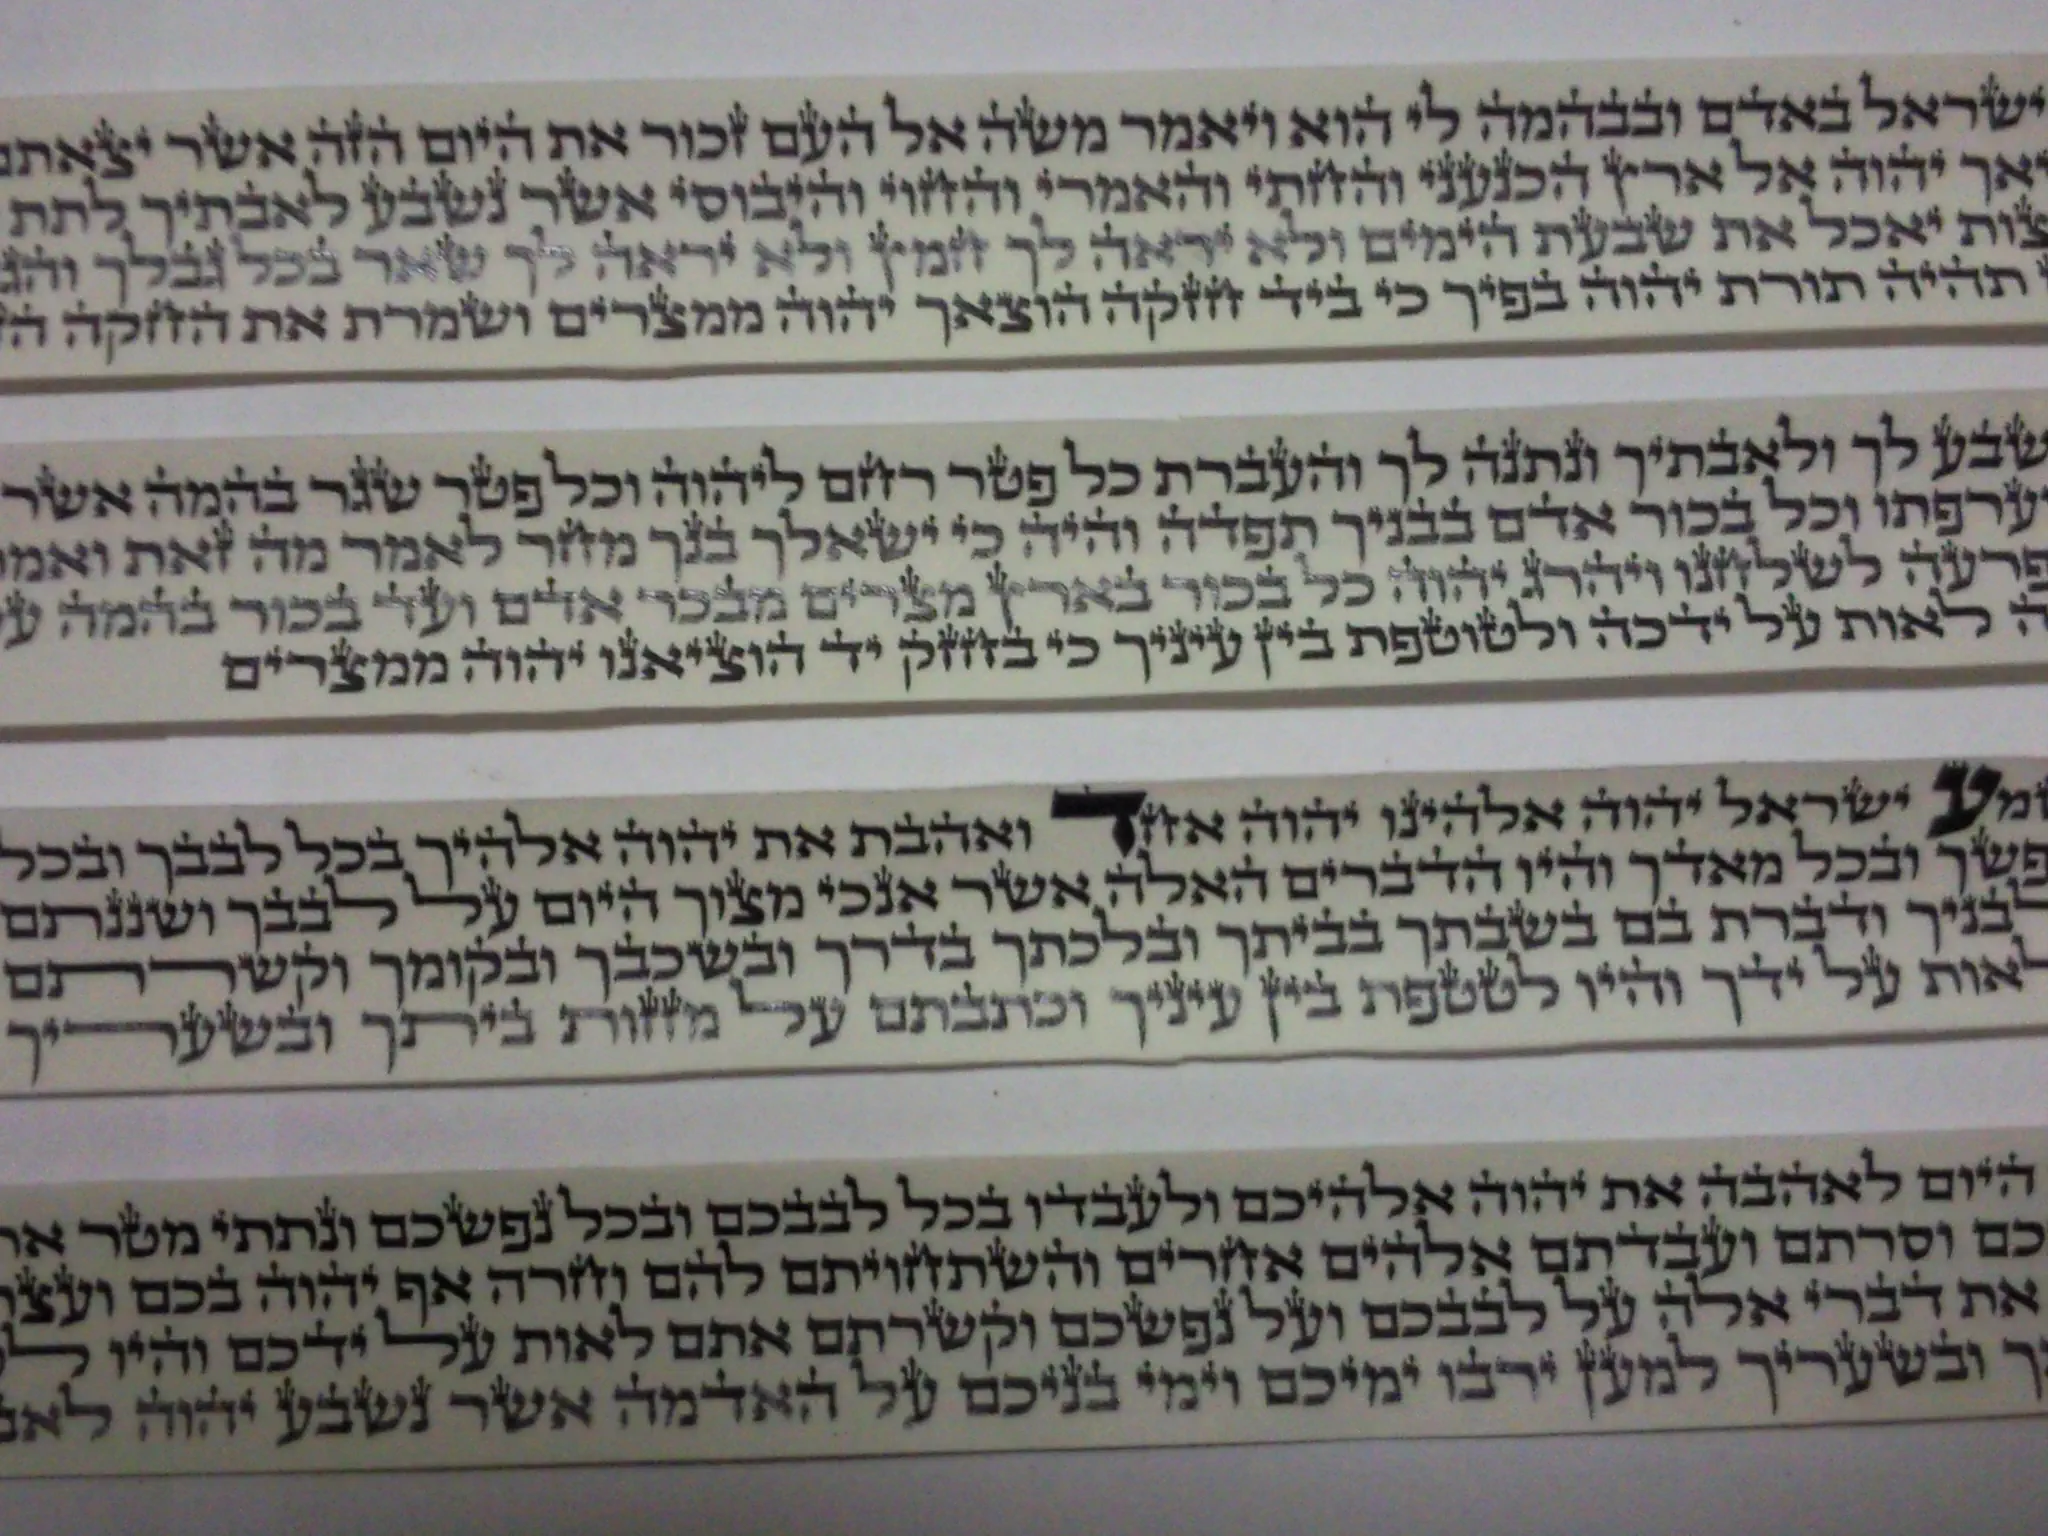 ישראל באדם ובבהמה לי הוא ויאמר משה אל העם זכור את היום הזה אשר יצאתם
יהוה אל ארץ הכנעני והחתי והאמרי והחוי והיבוסי אשר נשבע לאבתיך לתת
יאכל את שבעת הימים ולא יראה לך חמץ ולא יראה לך שאר בכל גבלך
תהיה תורת יהוה בפיך כי ביד חזקה הוצאך יהוה ממצרים ושמרת את החקה
שבע לך ולאבתיך ונתנה לך והעברת כל פטר רחם ליהוה וכל פטר שגר בהמה אשר
וערפתו וכל בכור אדם בבניך תפדה והיה כי ישאלך בנך מחר לאמר מה זאת
פרעה לשלחנו ויהרג יהוה כל בכור בארץ מצרים מבכר אדם ועד בכור בהמה
לאות על ידכה ולטוטפת בין עיניך כי בחזק יד הוציאנו יהוה ממצרים
מע ישראל יהוה אלהינו יהוה אחד ואהבת את יהוה אלהיך בכל לבבך ובכל
פשך ובכל מאדך והיו הדברים האלה אשר אנכי מצוך היום על לבבך ושננתם
לבניך ודברת בם בשבתך בביתך ובלכתך בדרך ובשכבך ובקומך וקשרתם
לאות על ידך והיו לטטפת בין עיניך וכתבתם על מזזות ביתך ובשעריך
היום לאהבה את יהוה אלהיכם ולעבדו בכל לבבכם ובכל נפשכם ונתתי מטר
כם וסרתם ועבדתם אלהים אחרים והשתחויתם להם וחרה אף יהוה בכם
את דברי אלה על לבבכם ועל נפשכם וקשרתם אתם לאות על ידכם והיו
ובשעריך למען ירבו ימיכם וימי בניכם על האדמה אשר נשבע יהוה